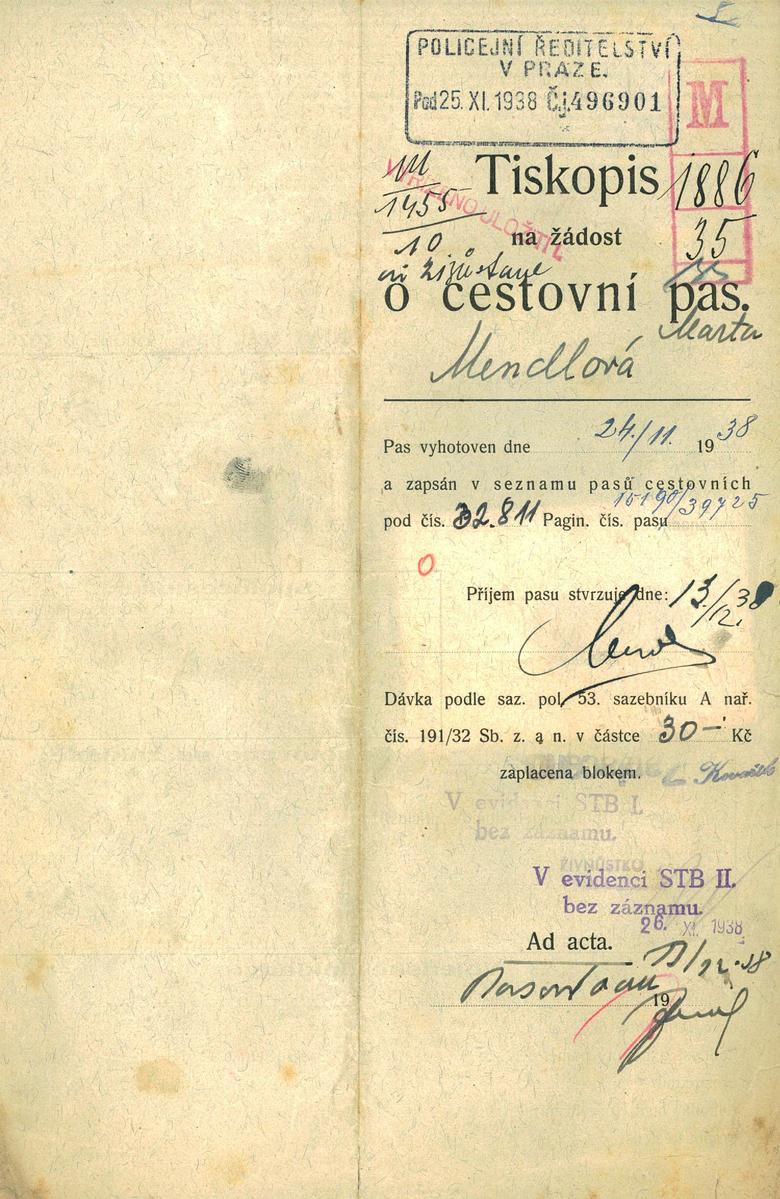 POLICEJNÍ ŘEDITELSTVÍ
V PRAZE.
Pod 25. XI. 1938 Čj. 496901
M
1886
35
VYŘÍZENO ULOŽITI
1455
10
Tiskopis
na žádost
o cestovní pas.
Marta
Mendlová
Pas vyhotoven dne 24./11. 1938
a zapsán v seznamu pasů cestovních
pod čís. 32.811 Pagin. čís. pasu 15190/39725
Příjem pasu stvrzuje dne: 13./12. 38
Dávka podle saz. pol. 53. sazebníku A nař.
čís. 191/32 Sb. z. a n. v částce 30 — Kč
zaplacena blokem.
V evidenci STB I.
bez záznamu.
ŽIVNOSTKO
V evidenci STB II.
bez záznamu.
26. XI. 1938
Ad acta.
19